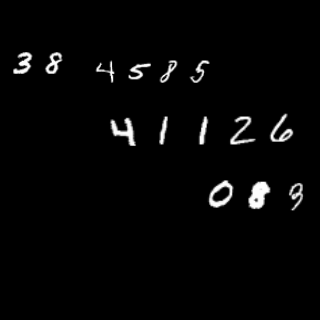 38 4585
41126
083